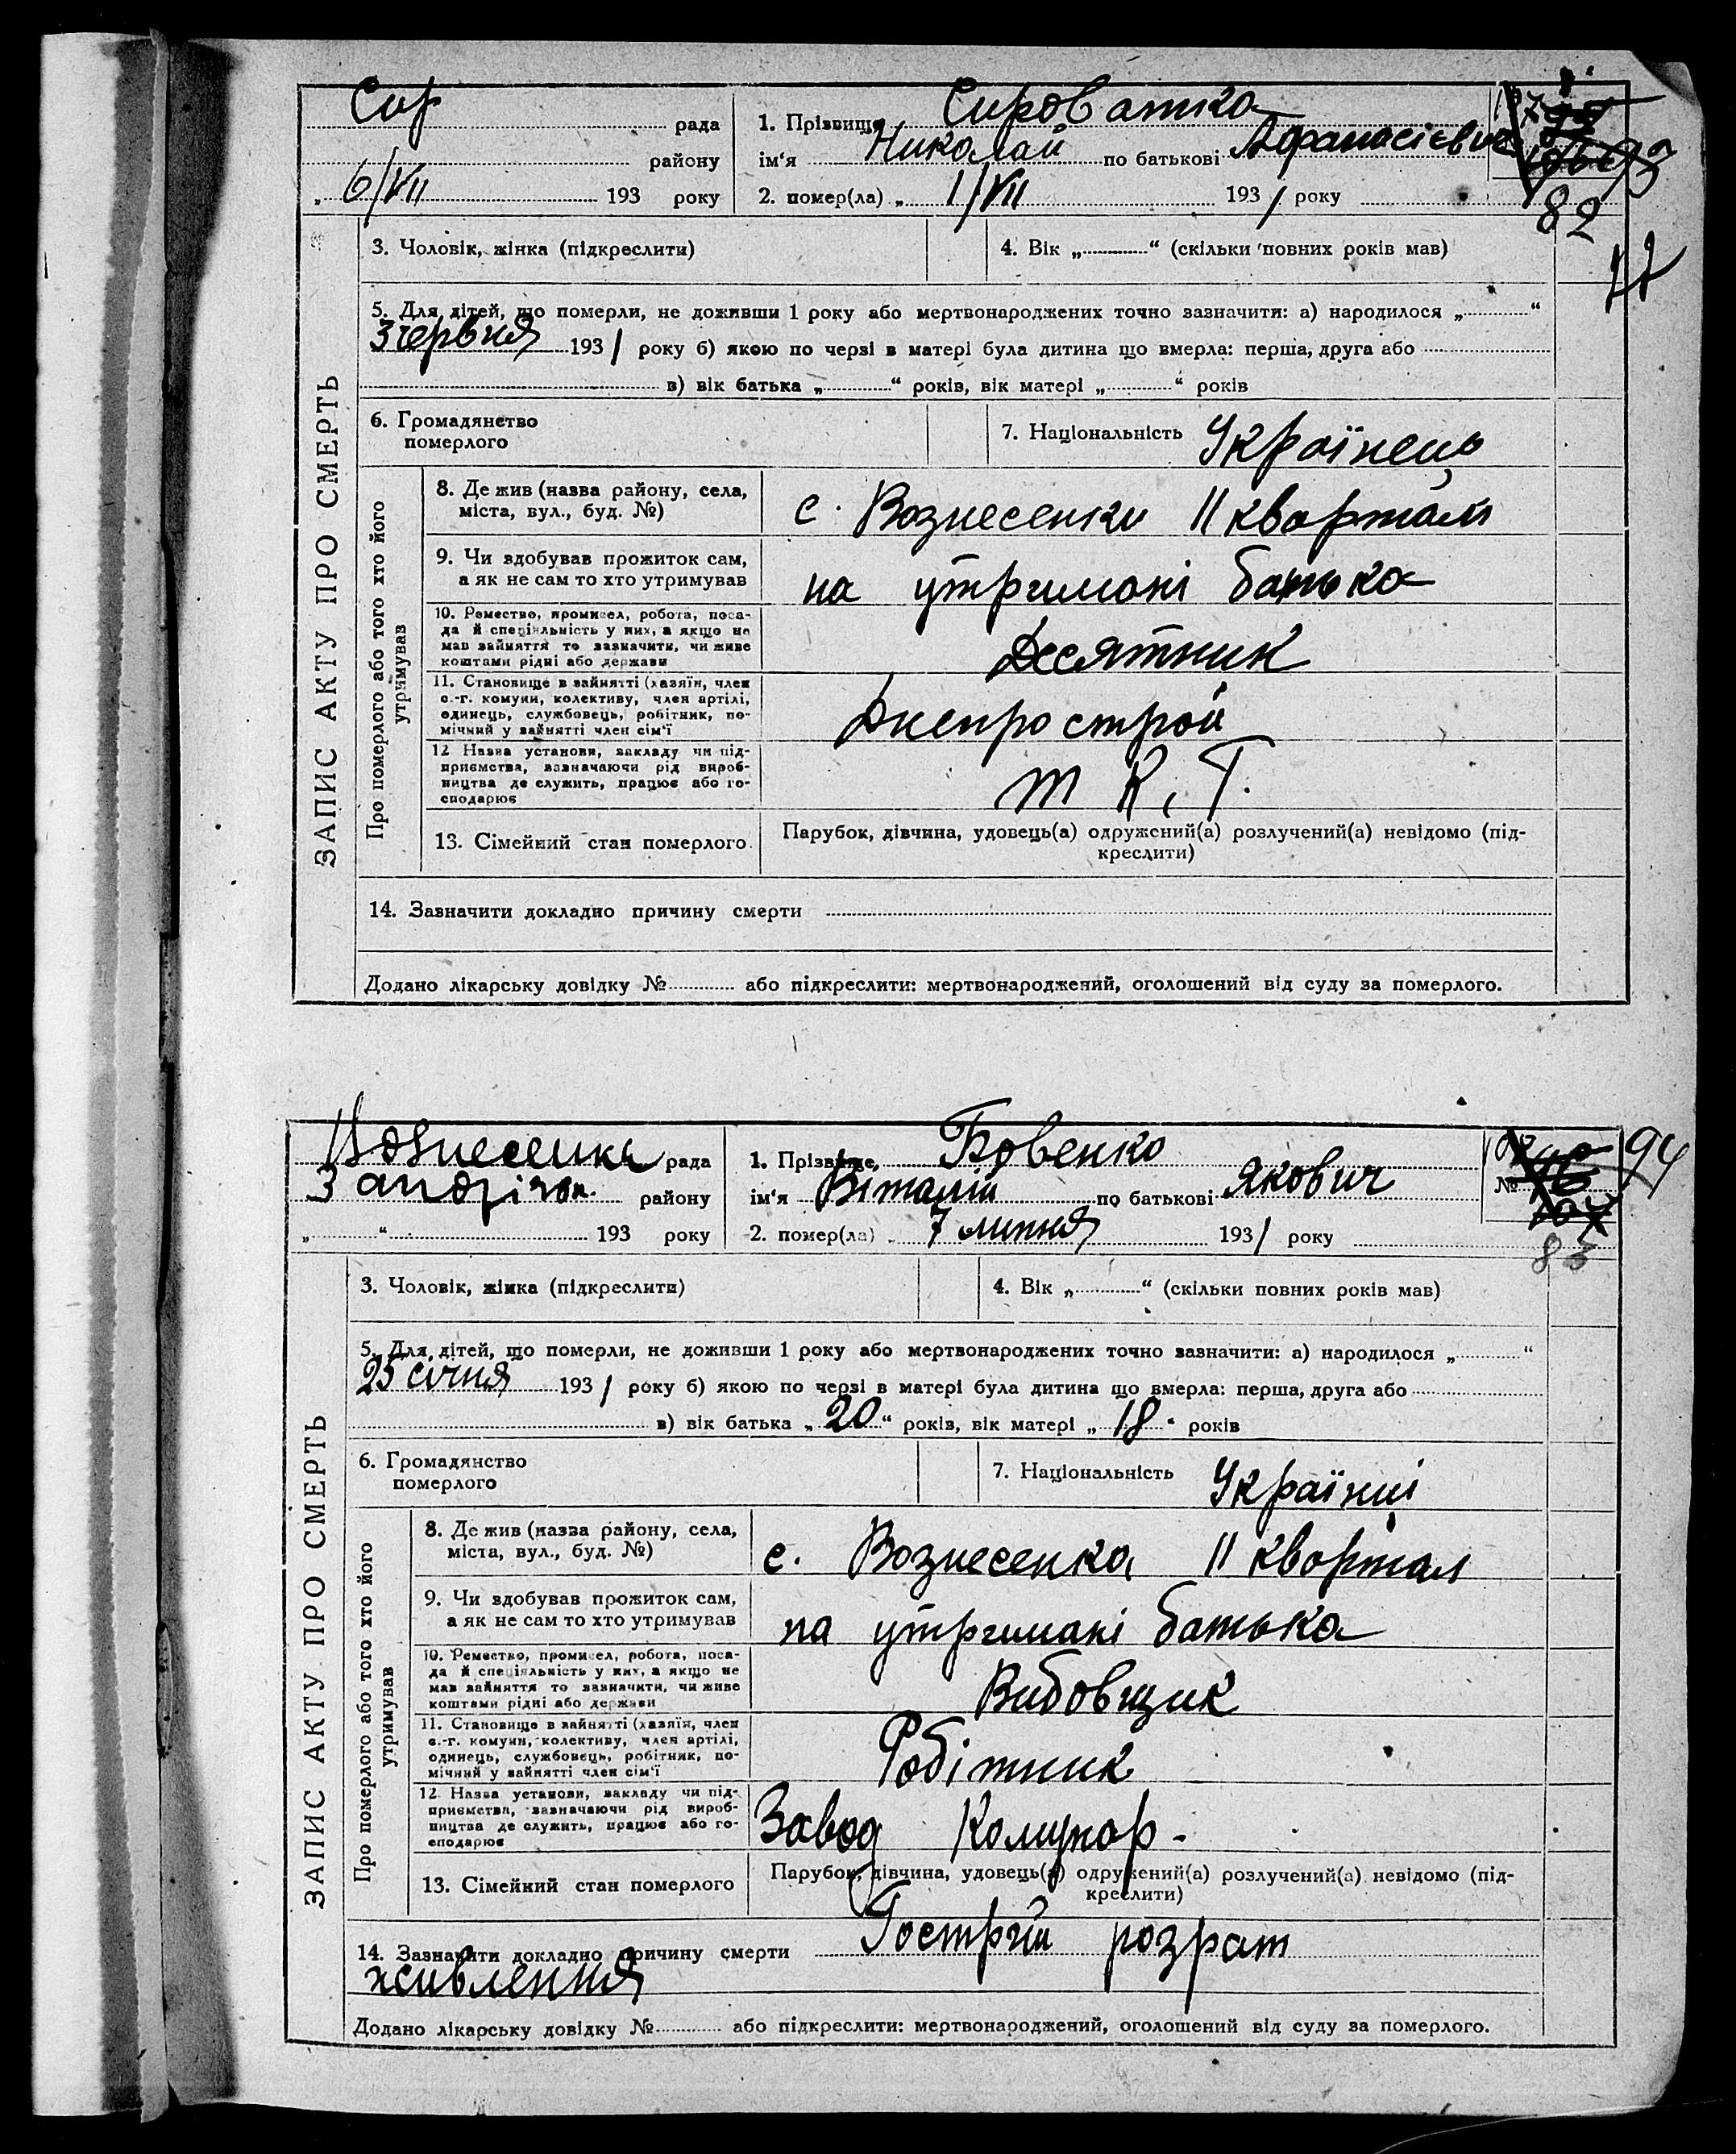 Сир рада
району
„ 6/VII 193 року
1. Прізвище Сироватка
ім'я Николай по батькові Афанасієвич
2. помер(ла) „ 1/VII 1931 року
93
82
ЗАПИС АКТУ ПРО СМЕРТЬ
3. Чоловік, жінка (підкреслити)
4. Вік „ “ (скільки повних років мав)
5. Для дітей, що померли, не доживши 1 року або мертвонароджених точно зазначити: а) народилося „ “
3 червня 1931 року б) якою по черзі в матері була дитина що вмерла: перша, друга або
в) вік батька „ “ років, вік матері „ “ років
6. Громадянство
померлого
7. Національність Українець
Про померлого або того хто його
утримував
8. Де жив (назва району, села,
міста, вул., буд. №)
с. Вознесенки II квартал
9. Чи здобував прожиток сам,
а як не сам то хто утримував
на утримані батька
10. Ремество, промисел, робота, поса-
да й спеціяльність у них, а якщо не
мав зайняття то зазначити, чи живе
коштами рідні або держави
Десятник
11. Становище в зайнятті (хазяїн, член
с.-г. комуни, колективу, член артілі,
одинець, службовець, робітник, по-
мічний у зайнятті член сім'ї
Днепрострой
12 Назва установи, закладу чи під-
приємства, зазначаючи рід вироб-
ництва де служить, працює або го-
сподарює
13. Сімейний стан померлого
Парубок, дівчина, удовець(а) одружений(а) розлучений(а) невідомо (під-
креслити)
14. Зазначити докладно причину смерти
Додано лікарську довідку № або підкреслити: мертвонароджений, оголошений від суду за померлого.
Вознесенка рада
Запоріжж. району
„ “ 193 року
1. Прізвище, Бовенко
ім'я Віталій по батькові Якович
2. помер(ла) „ 7 липня 1931 року
№
94
83
ЗАПИС АКТУ ПРО СМЕРТЬ
3. Чоловік, жінка (підкреслити)
4. Вік „ “ (скільки повних років мав)
5. Для дітей, що померли, не доживши 1 року або мертвонароджених точно зазначити: а) народилося „ “
25 січня 1931 року б) якою по черзі в матері була дитина що вмерла: перша, друга або
в) вік батька „ 20 “ років, вік матері „ 18 “ років
6. Громадянство
померлого
7. Національність Українці
Про померлого або того хто його
утримував
8. Де жив (назва району, села,
міста, вул., буд. №)
с. Вознесенка II квартал
9. Чи здобував прожиток сам,
а як не сам то хто утримував
на утримані батька
10. Ремество, промисел, робота, поса-
да й спеціяльність у них, а якщо не
мав зайняття то зазначити, чи живе
коштами рідні або держави
Вибовщик
11. Становище в зайнятті (хазяїн, член
с.-г. комуни, колективу, член артілі,
одинець, службовець, робітник, по-
мічний у зайнятті член сім'ї
Робітник
12 Назва установи, закладу чи під-
приємства, зазначаючи рід вироб-
ництва де служить, працює або го-
сподарює
Завод Комунар-
13. Сімейний стан померлого
Парубок, дівчина, удовець(а) одружений(а) розлучений(а) невідомо (під-
креслити)
14. Зазначити докладно причину смерти Гострий розрат
живлення
Додано лікарську довідку № або підкреслити: мертвонароджений, оголошений від суду за померлого.